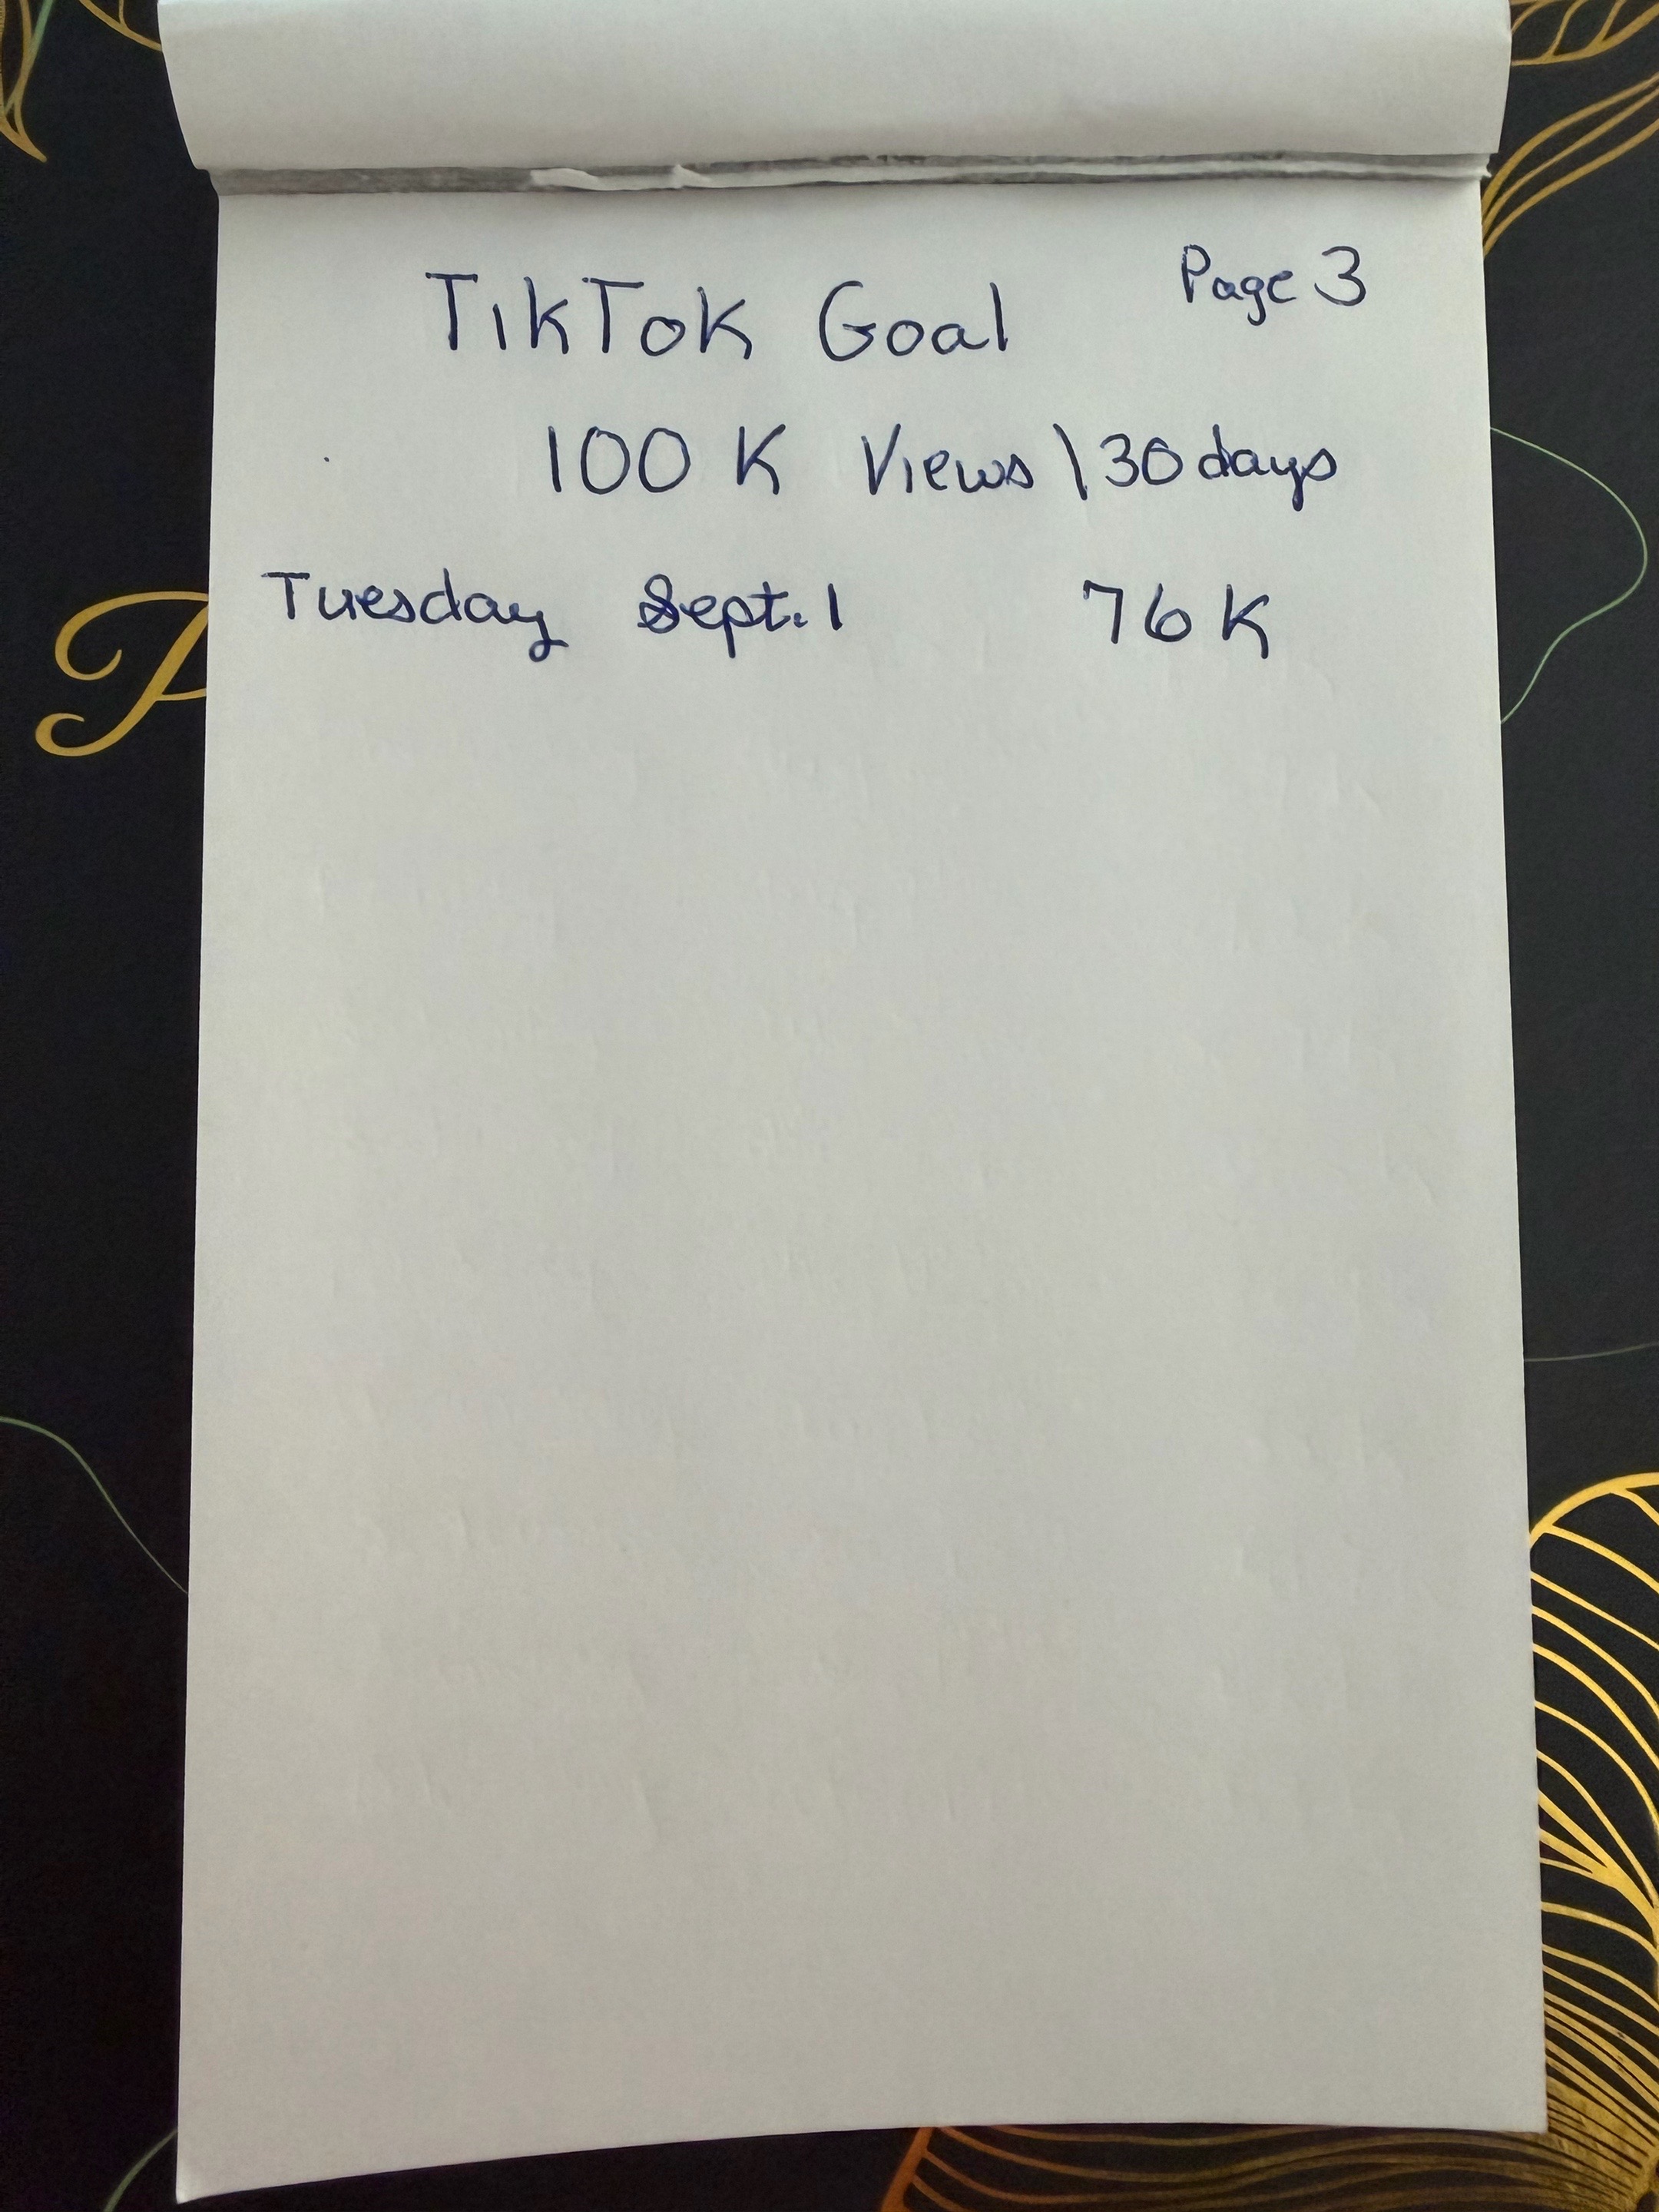 Page 3
TikTok Goal
100 K Views \ 30 days
Tuesday Sept. 1 76 K
P